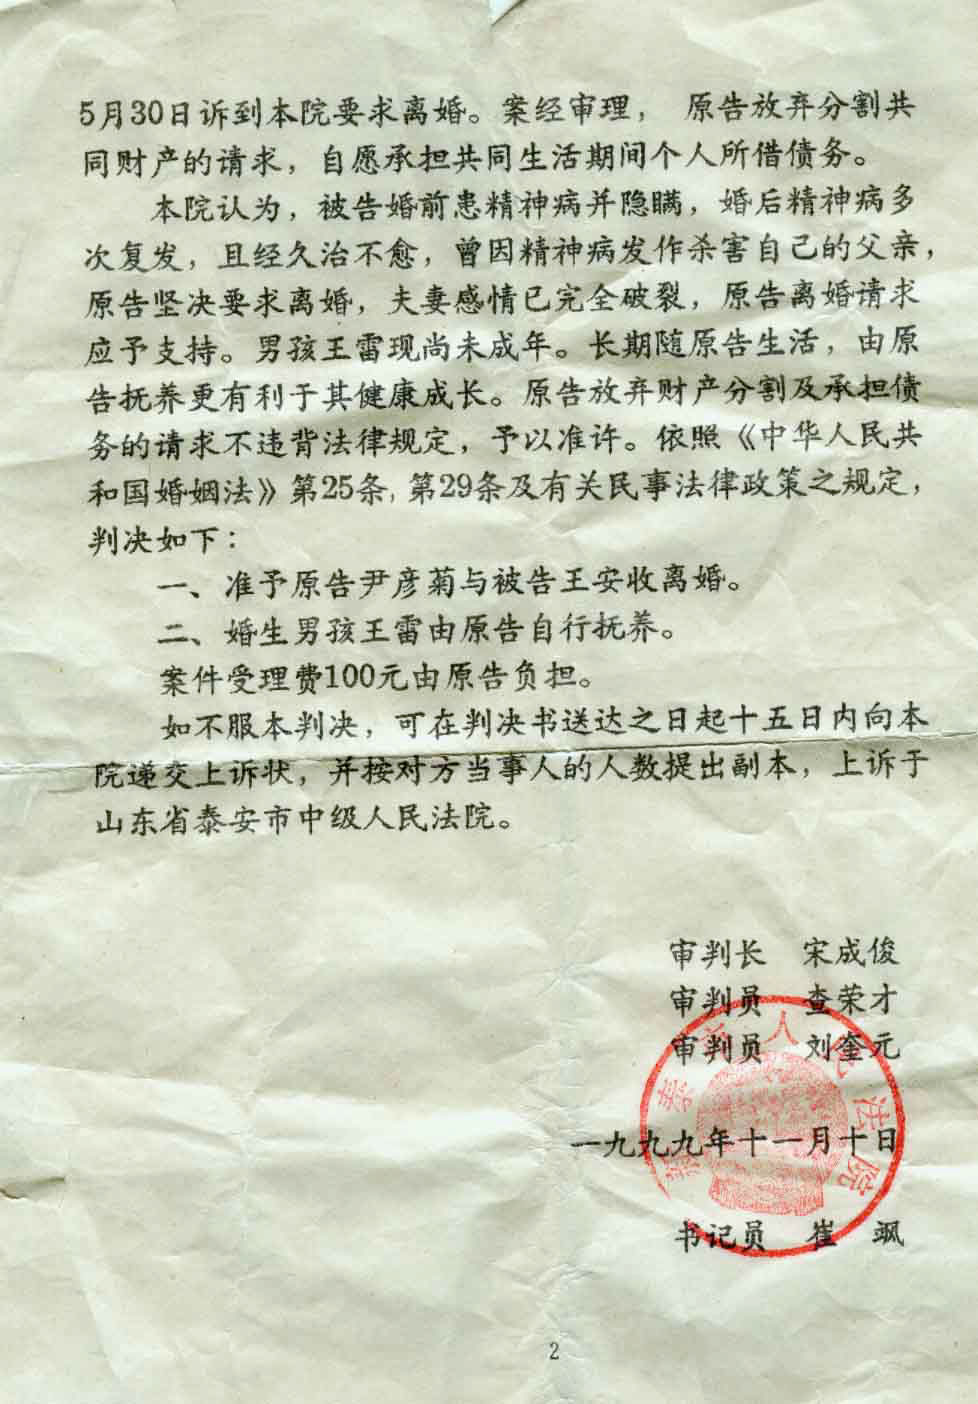 5月30日诉到本院要求离婚。案经审理， 原告放弃分割共
同财产的请求，自愿承担共同生活期间个人所借债务。
本院认为，被告婚前患精神病并隐瞒，婚后精神病多
次复发，且经久治不愈，曾因精神病发作杀害自己的父亲，
原告坚决要求离婚，夫妻感情已完全破裂，原告离婚请求
应予支持。男孩王雷现尚未成年。长期随原告生活，由原
告抚养更有利于其健康成长。原告放弃财产分割及承担债
务的请求不违背法律规定，予以准许。依照《中华人民共
和国婚姻法》第25条,第29条及有关民事法律政策之规定，
判决如下：
一、准予原告尹彦菊与被告王安收离婚。
二、婚生男孩王雷由原告自行抚养。
案件受理费100元由原告负担。
如不服本判决，可在判决书送达之日起十五日内向本
院递交上诉状，并按对方当事人的人数提出副本，上诉于
山东省泰安市中级人民法院。
审判长 宋成俊
审判员 查荣才
审判员 刘奎元
一九九九年十一月十日
书记员 崔 飒
人民法院
2